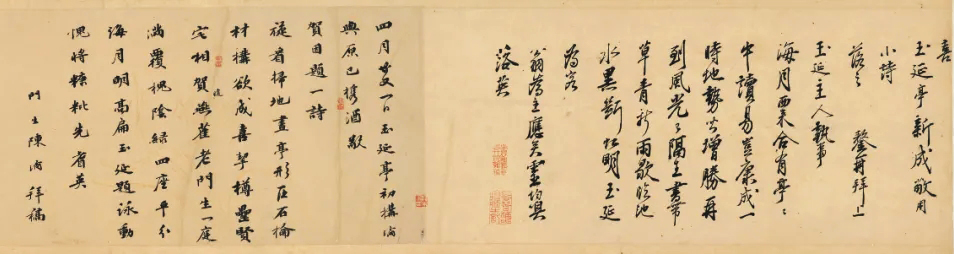 喜
玉延亭新成敬用
小詩
落之 鏊再拜上
玉延主人執事
海月西來合有亭〻
中讀易豈康成一
時地勢增勝再
到風光隔書帶
草青新雨歇臨池
水黑斷虹明玉延
為客
翁為主應笑靈均具
落英
四月廿又一日玉延亭初構
與原已携酒
賀因題一詩
旋看掃地畫亭形匠石掄
材構欲成喜挈樽罍賢
宅相賀燕雀老門生一庭
滿覆槐陰綠四座平分
海月明高扁玉延題詠動
愧將糠粃先省英
門生陳拜稿